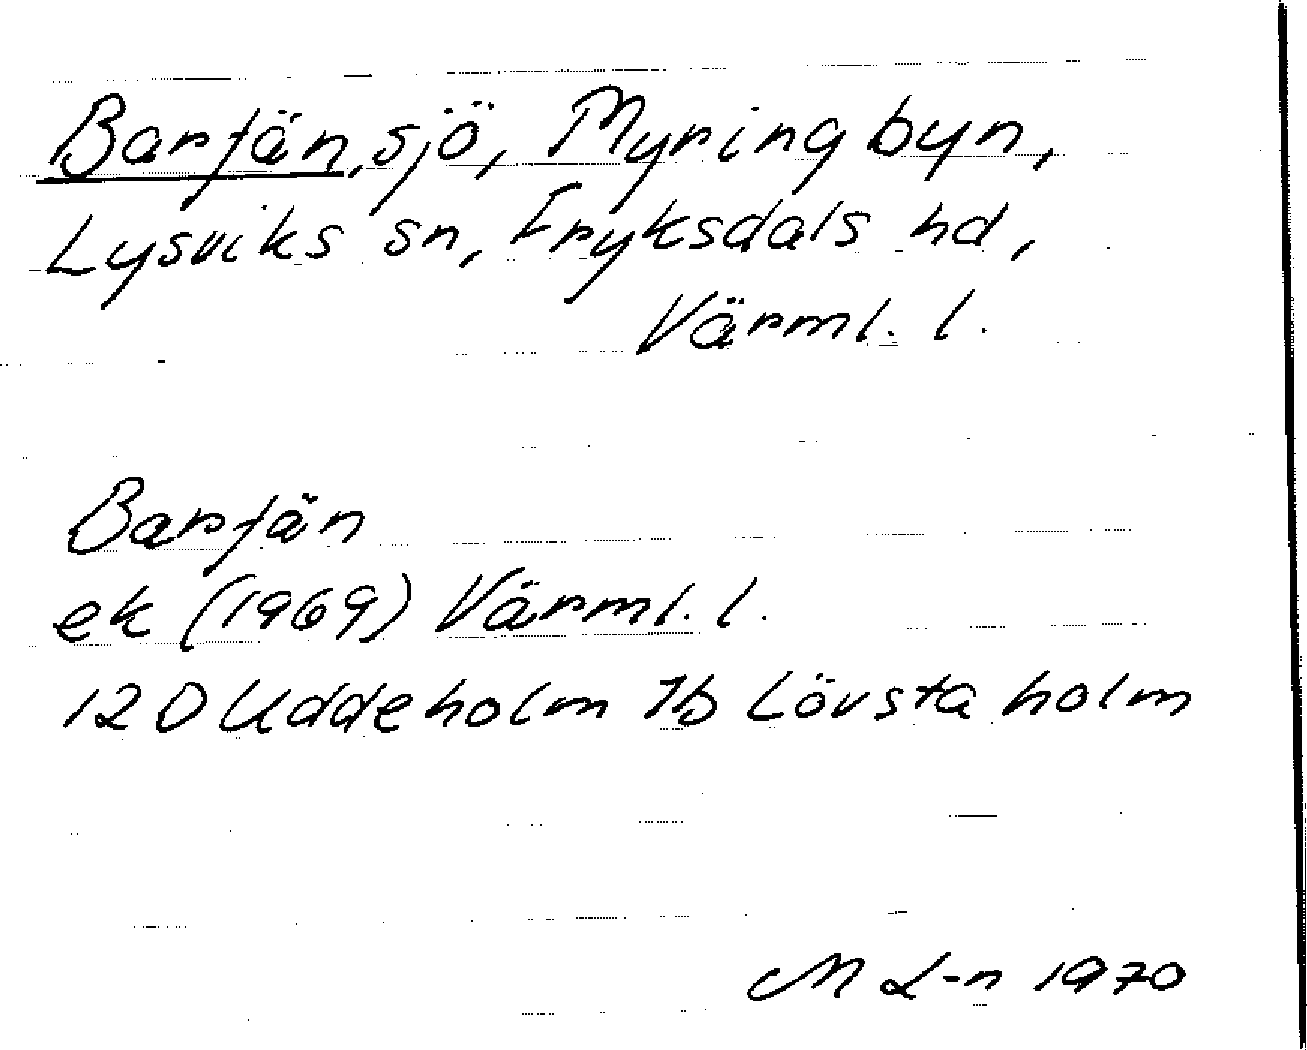 Barfän, sjö, Myringbyn,
Lysviks sn, Fryksdals hd,
Värml. l.
Barfän
ek (1969) Värml. l.
12D Uddeholm 7b Lövstaholm
M L-n 1970